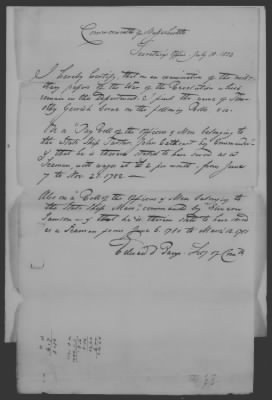 Commonwealth of Massachusetts
Secretary's Office July 10. 1832
I hereby Certify, that on an examination of the mili-
tary papers of the War of the Revolution which
remain in this Department I find the name of Timo-
thy Gerrish borne on the following Rolls viz.
On a "Pay Roll of the Officers & Men belonging to
the State Ship Tartar John Cathcart by Commander"
& that he is thereon stated to have served as a
Seaman, with wages at per month - from June
7 to Nov. 21 1782 -
Also on a "Roll of the Officers & Men belonging to
the State Ship Mars, commanded by Simeon
Samson - & that he is thereon stated to have served
as a Seaman from June 6. 1780 to March 12. 1781
Edward D Bangs Secy of Com'th